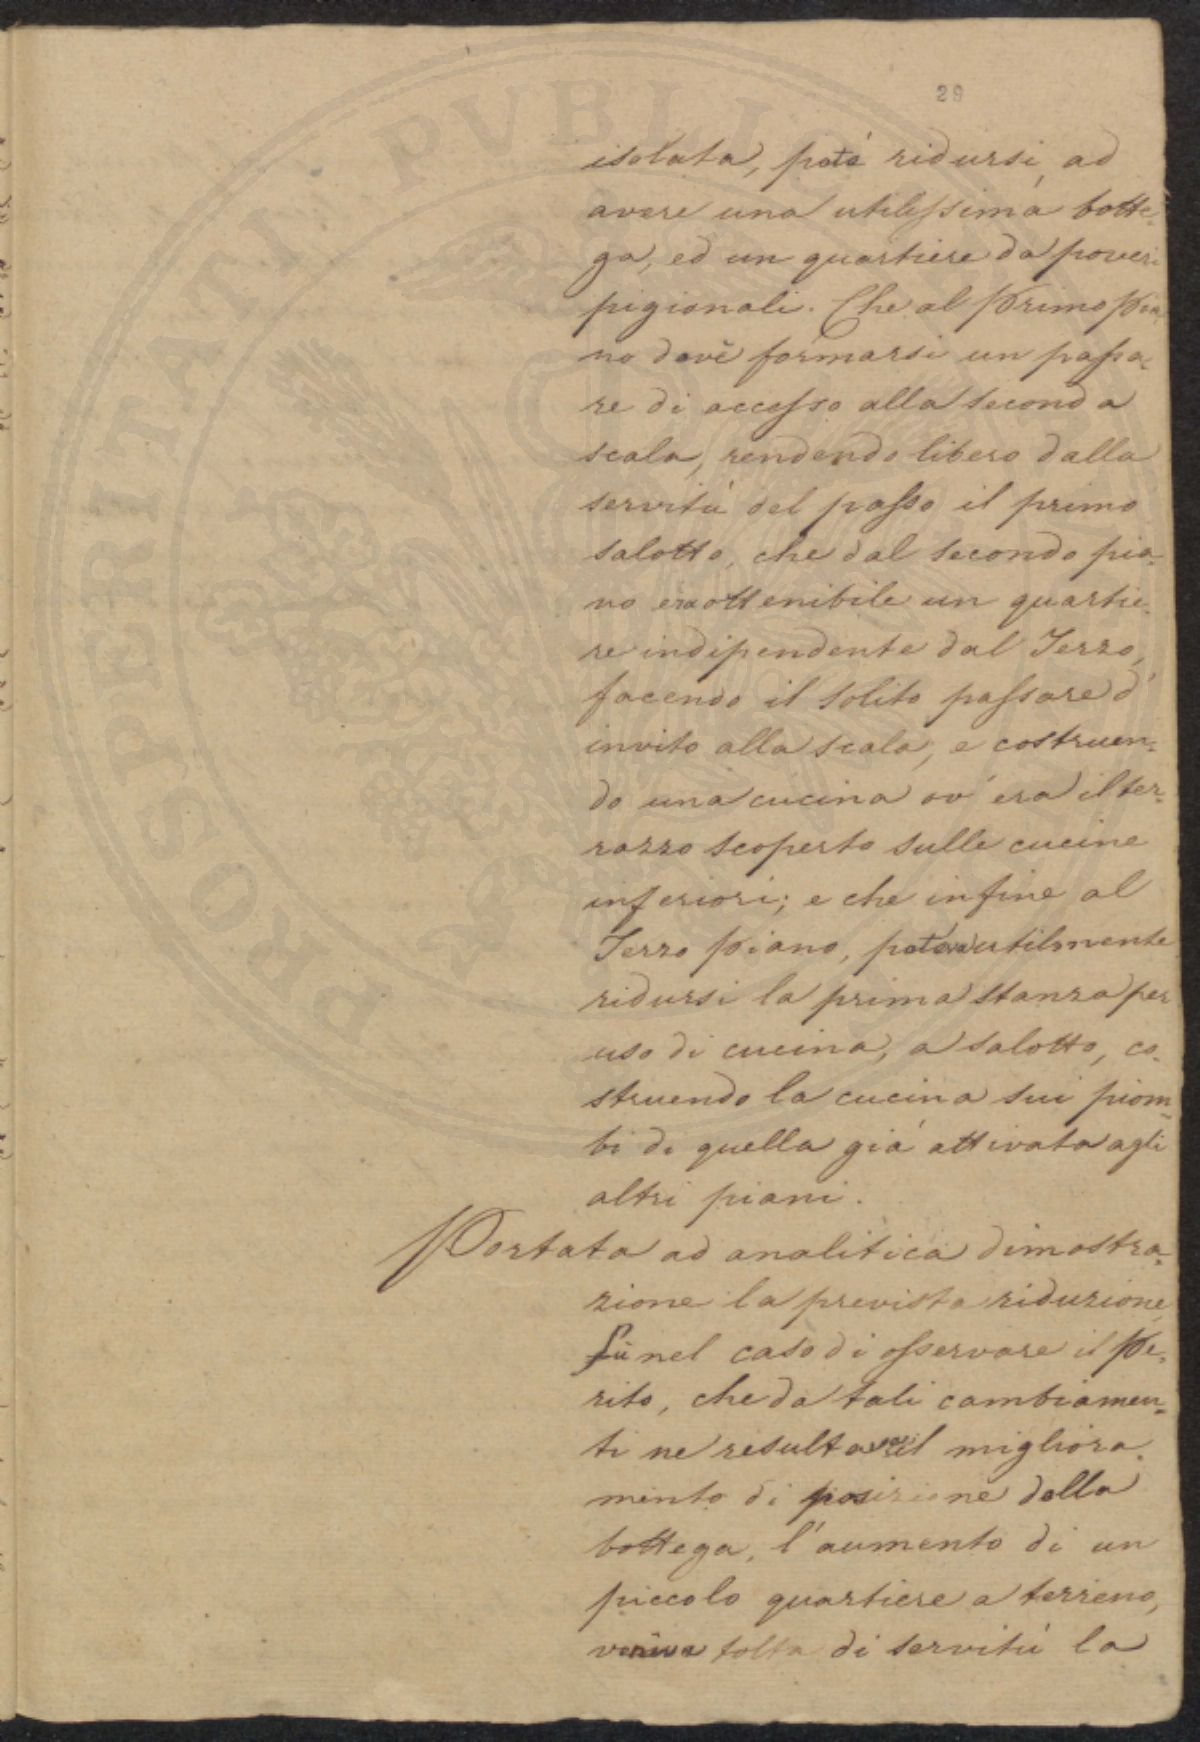 29
isolata, poté ridursi ad
avere una utilissima botte-
ga, ed un quartiere da poveri
pigionali. Che al Primo Pia-
no dové formarsi un passa-
re di accesso alla seconda
scala, rendendo libero dalla
servitù del passo il primo
salotto, che dal secondo pia-
no era ottenibile un quartie-
re indipendente dal Terzo,
facendo il solito passare d'
invito alla scala, e costruen-
do una cucina ov'era il ter-
razzo scoperto sulle cucine
inferiori; e che infine al
Terzo Piano, poteva utilmente
ridursi la prima stanza per
uso di cucina, a salotto, co-
struendo la cucina sui piom-
bi di quella già attivata agli
altri piani.
Portata ad analitica dimostra-
zione la prevista riduzione
fù nel caso di osservare il Pe-
rito, che da tali cambiamen-
ti ne resultava il migliora-
mento di posizione della
bottega, l'aumento di un
piccolo quartiere a terreno,
veniva tolta di servitù la
PROSPERITATI PVBLIC